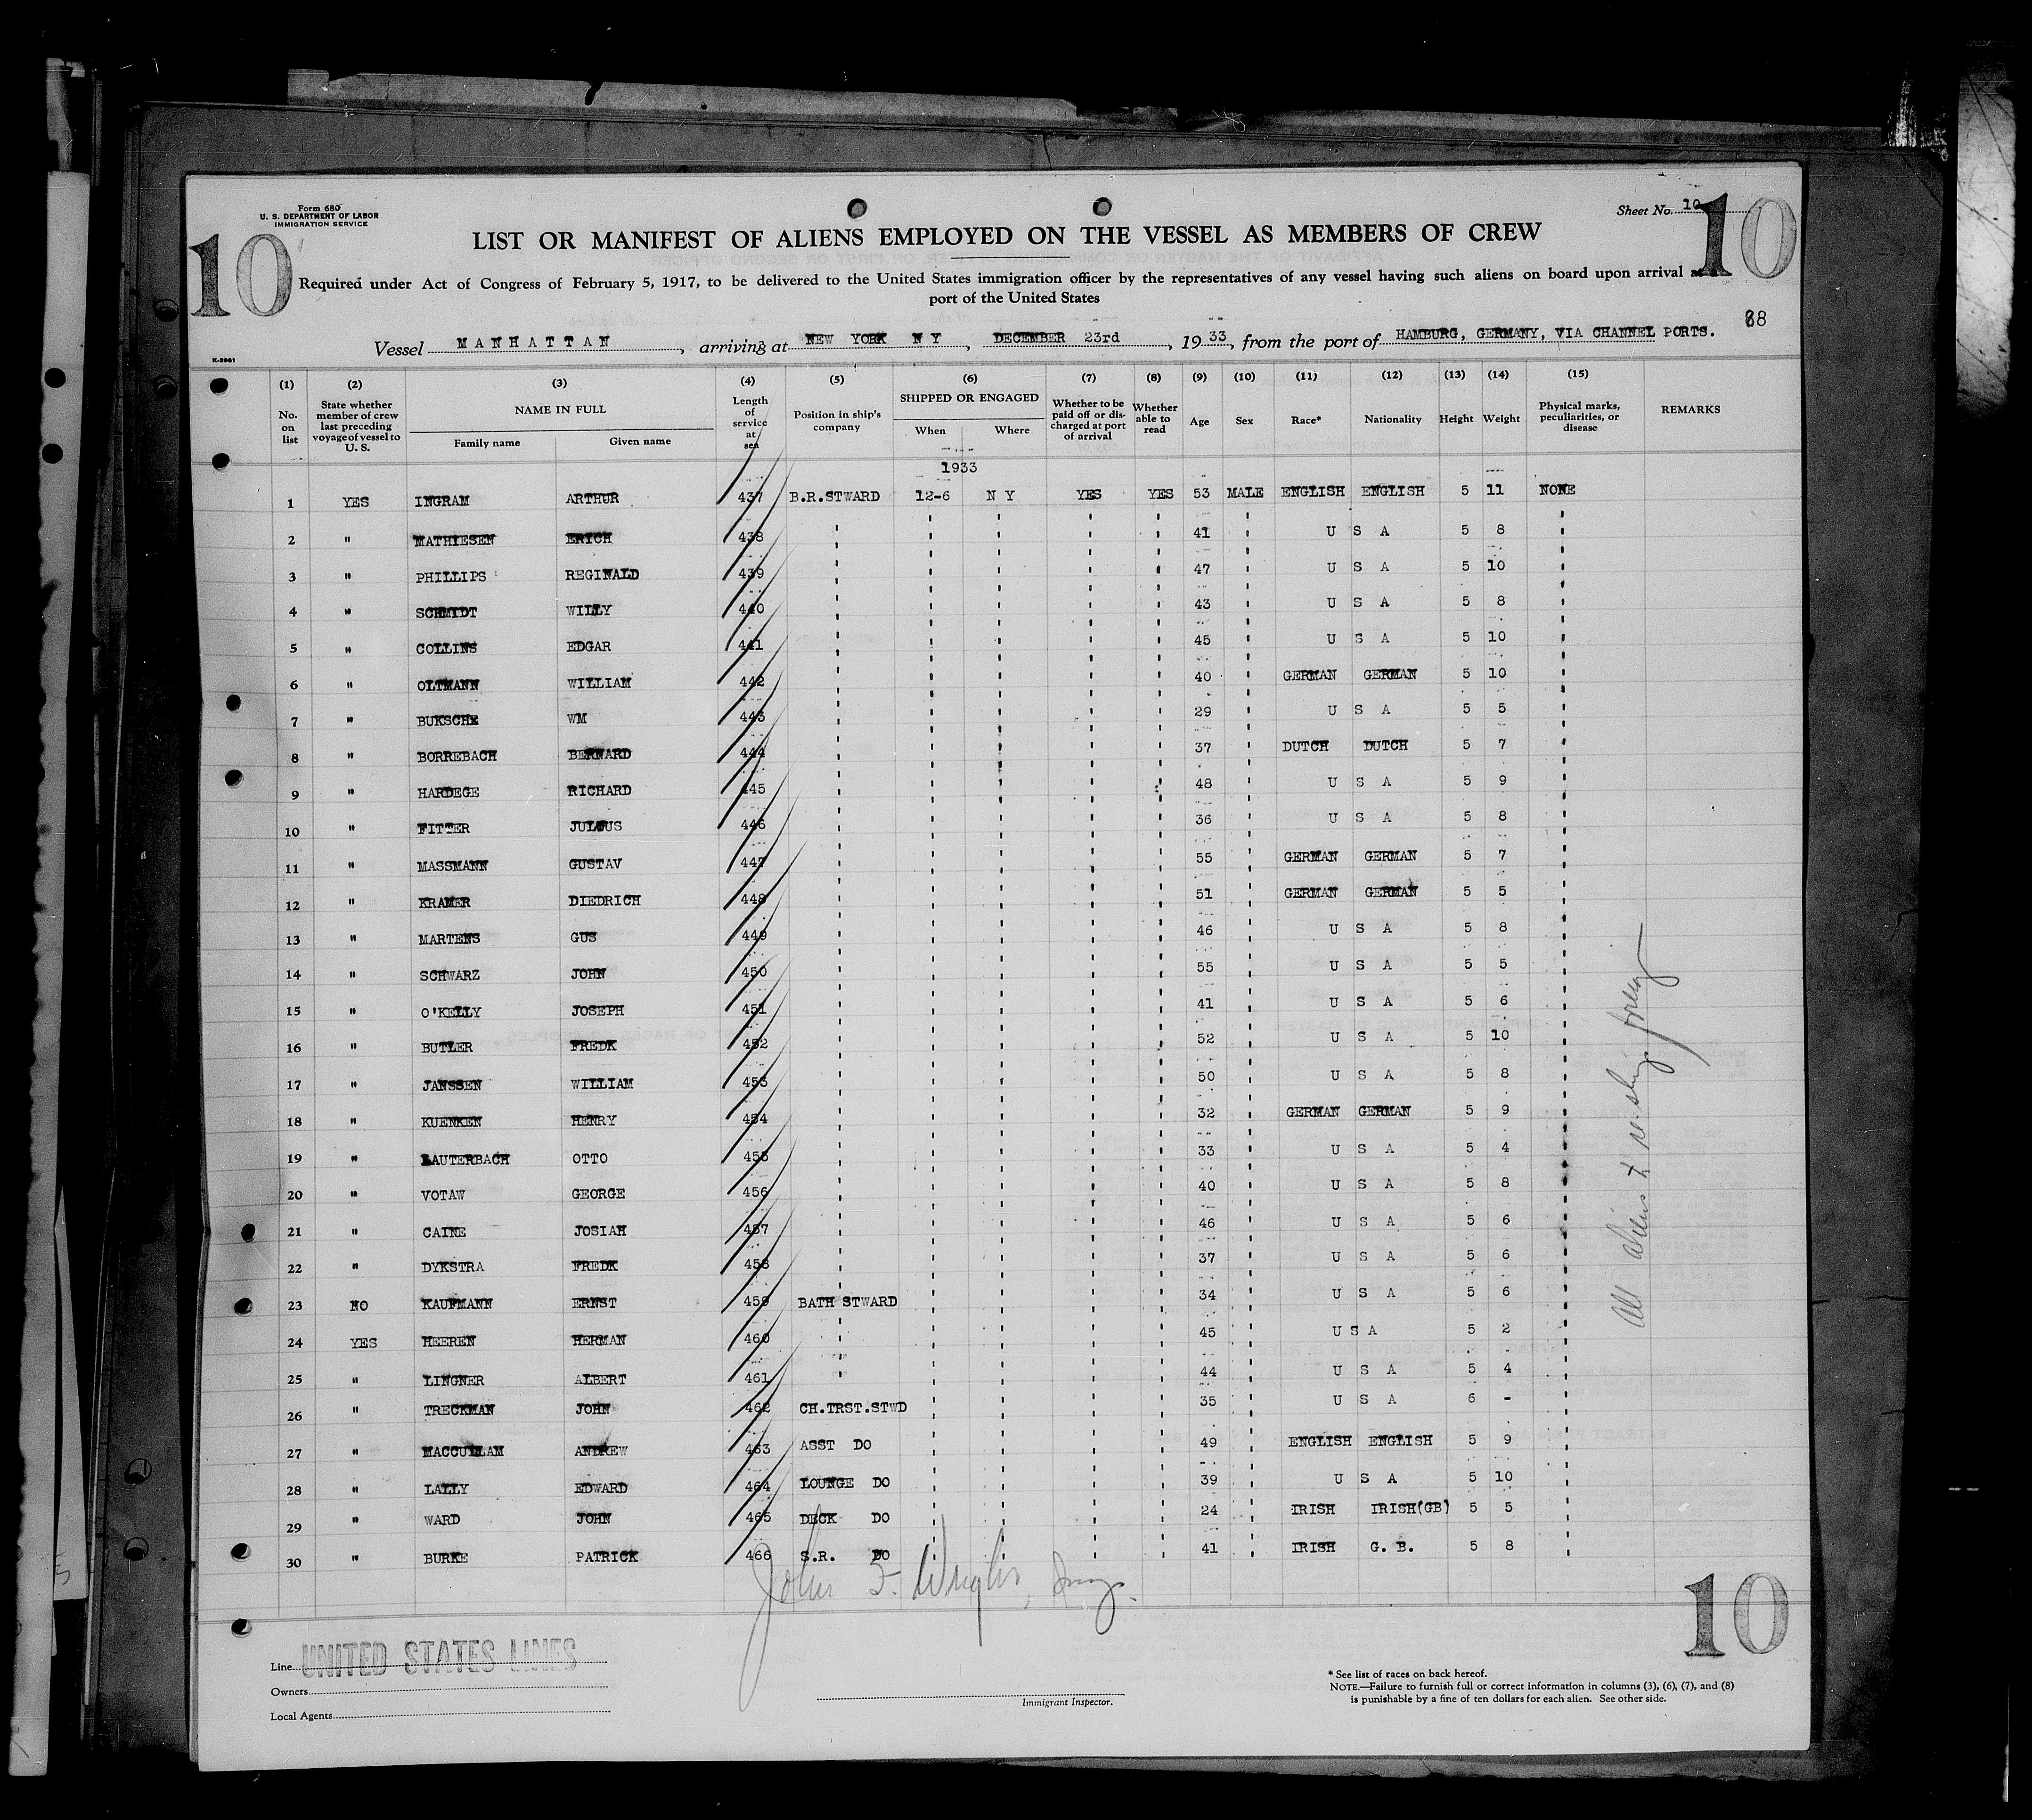 Form 680
U. S. DEPARTMENT OF LABOR
IMMIGRATION SERVICE
Sheet No. 10
10
10
LIST OR MANIFEST OF ALIENS EMPLOYED ON THE VESSEL AS MEMBERS OF CREW
Required under Act of Congress of February 5, 1917, to be delivered to the United States immigration officer by the representatives of any vessel having such aliens on board upon arrival at a
port of the United States
88
Vessel MANHATTAN, arriving at NEW YORK N Y, DECEMBER 23rd, 1933, from the port of HAMBURG, GERMANY, VIA CHANNEL PORTS.
K-2961
(1) (2) (3) (4) (5) (6) (7) (8) (9) (10) (11) (12) (13) (14) (15)
No. on list
State whether member of crew last preceding voyage of vessel to U. S.
NAME IN FULL
Family name
Given name
Length of service at sea
Position in ship's company
SHIPPED OR ENGAGED
When
Where
Whether to be paid off or discharged at port of arrival
Whether able to read
Age
Sex
Race*
Nationality
Height
Weight
Physical marks, peculiarities, or disease
REMARKS
1933
1 YES INGRAM ARTHUR 437 B.R.STWARD 12-6 N Y YES YES 53 MALE ENGLISH ENGLISH 5 11 NONE
2 " MATHIESEN ERICH 438 " " " " " 41 " U S A 5 8 "
3 " PHILLIPS REGINALD 439 " " " " " 47 " U S A 5 10 "
4 " SCHMIDT WILLY 440 " " " " " 43 " U S A 5 8 "
5 " COLLINS EDGAR 441 " " " " " 45 " U S A 5 10 "
6 " OLTMANN WILLIAM 442 " " " " " 40 " GERMAN GERMAN 5 10 "
7 " BUKSCHE WM 443 " " " " " 29 " U S A 5 5 "
8 " BORREBACH BERNARD 444 " " " " " 37 " DUTCH DUTCH 5 7 "
9 " HARDEGE RICHARD 445 " " " " " 48 " U S A 5 9 "
10 " FITTER JULIUS 446 " " " " " 36 " U S A 5 8 "
11 " MASSMANN GUSTAV 447 " " " " " 55 " GERMAN GERMAN 5 7 "
12 " KRAMER DIEDRICH 448 " " " " " 51 " GERMAN GERMAN 5 5 "
13 " MARTENS GUS 449 " " " " " 46 " U S A 5 8 "
14 " SCHWARZ JOHN 450 " " " " " 55 " U S A 5 5 "
15 " O'KELLY JOSEPH 451 " " " " " 41 " U S A 5 6 "
16 " BUTLER FREDK 452 " " " " " 52 " U S A 5 10 "
17 " JANSSEN WILLIAM 453 " " " " " 50 " U S A 5 8 "
18 " KUENKEN HENRY 454 " " " " " 32 " GERMAN GERMAN 5 9 "
19 " LAUTERBACH OTTO 455 " " " " " 33 " U S A 5 4 "
20 " VOTAW GEORGE 456 " " " " " 40 " U S A 5 8 "
21 " CAINE JOSIAH 457 " " " " " 46 " U S A 5 6 "
22 " DYKSTRA FREDK 458 " " " " " 37 " U S A 5 6 "
23 NO KAUFMANN ERNST 459 BATH STWARD " " " " 34 " U S A 5 6 "
24 YES HEEREN HERMAN 460 " " " " " 45 " U S A 5 2 "
25 " LINGNER ALBERT 461 " " " " " 44 " U S A 5 4 "
26 " TRECKMAN JOHN 462 CH.TRST.STWD " " " " 35 " U S A 6 - "
27 " MACCULLAM ANDREW 463 ASST DO " " " " 49 " ENGLISH ENGLISH 5 9 "
28 " LALLY EDWARD 464 LOUNGE DO " " " " 39 " U S A 5 10 "
29 " WARD JOHN 465 DECK DO " " " " 24 " IRISH IRISH(GB) 5 5 "
30 " BURKE PATRICK 466 S.R. DO " " " " 41 " IRISH G. B. 5 8 "
All aliens to reship foreign
John F. Wright, Insp.
10
Line UNITED STATES LINES
Owners
Local Agents
Immigrant Inspector.
* See list of races on back hereof.
NOTE.—Failure to furnish full or correct information in columns (3), (6), (7), and (8)
is punishable by a fine of ten dollars for each alien. See other side.